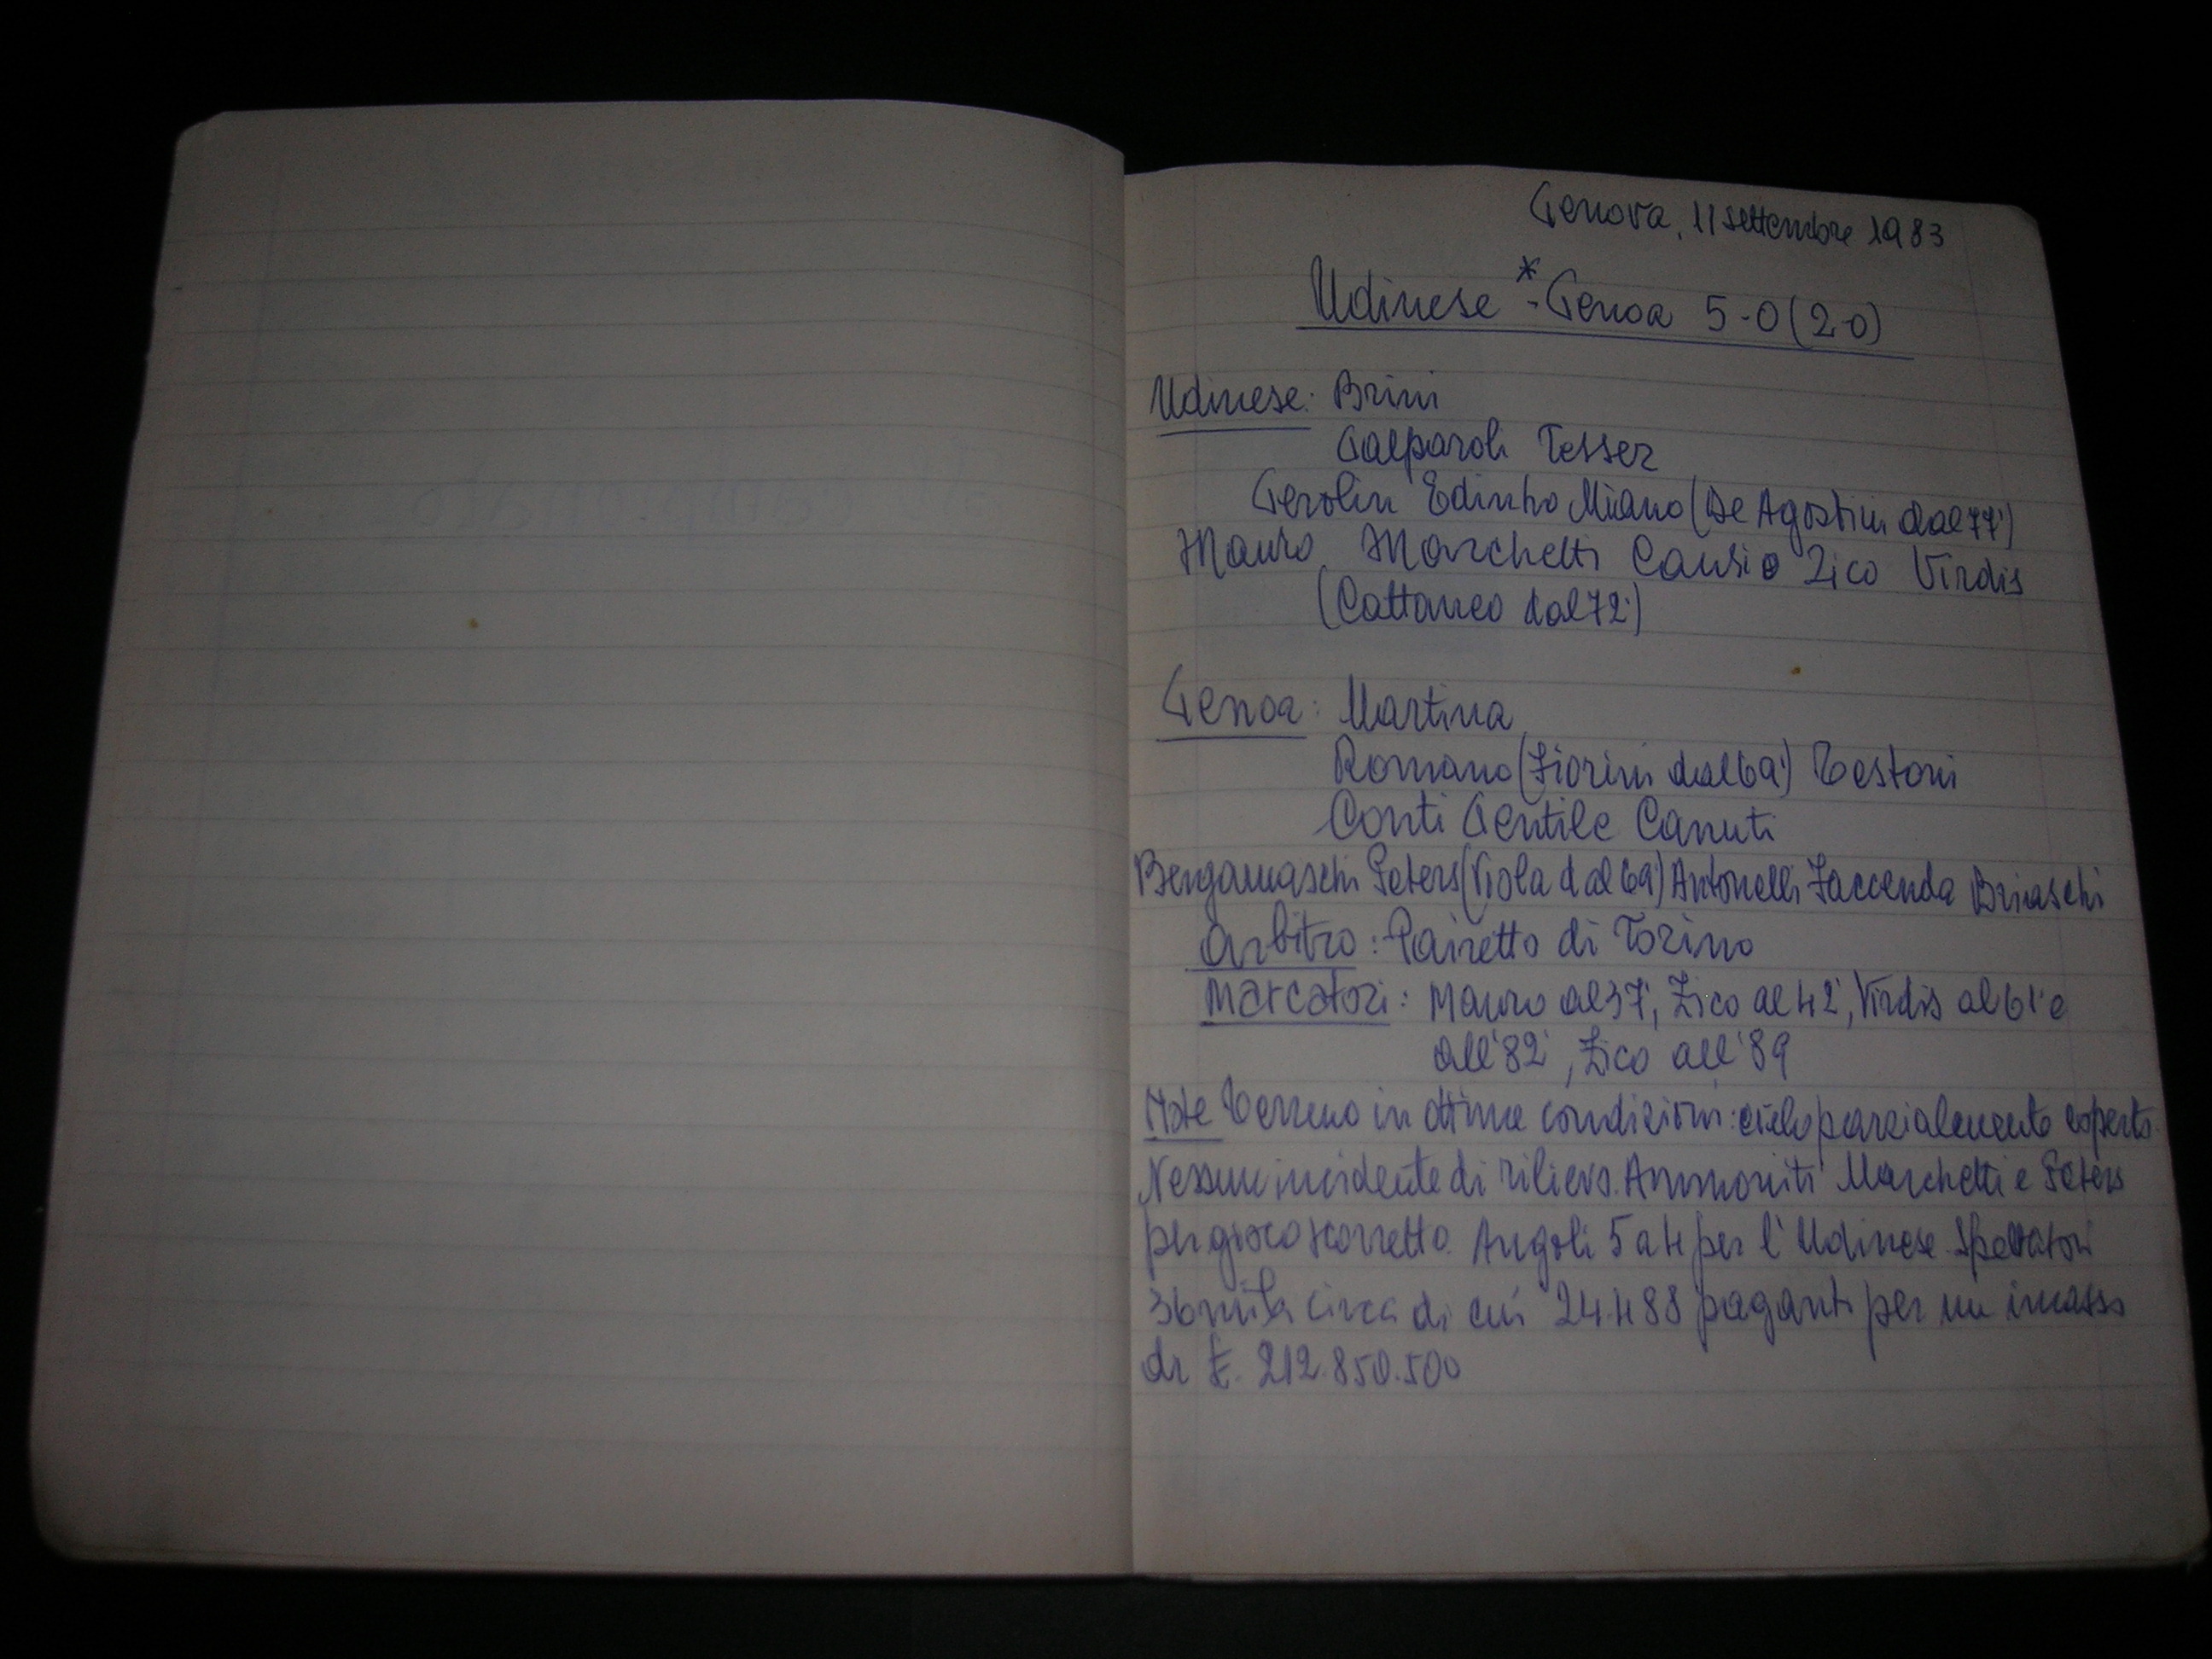 Genova, 11 settembre 1983
Udinese*-Genoa 5-0 (2-0)
Udinese: Brini
Galparoli Tesser
Gerolin Edinho Miano (De Agostini dal 77')
Mauro Marchetti Causio Zico Virdis
(Cattaneo dal 72')
Genoa: Martina
Romano (Fiorini dal 69') Testoni
Conti Gentile Canuti
Bergamaschi Peters (Viola dal 69') Antonelli Faccenda Briaschi
arbitro: Pairetto di Torino
Marcatori: Mauro al 37', Zico al 42', Virdis al 61' e
all'82', Zico all'89
Note Terreno in ottime condizioni: cielo parzialmente coperto.
Nessun incidente di rilievo. Ammoniti Marchetti e Peters
per gioco scorretto. Angoli 5 a 4 per l'Udinese. Spettatori
36mila circa di cui 24.488 paganti per un incasso
di £. 212.850.500